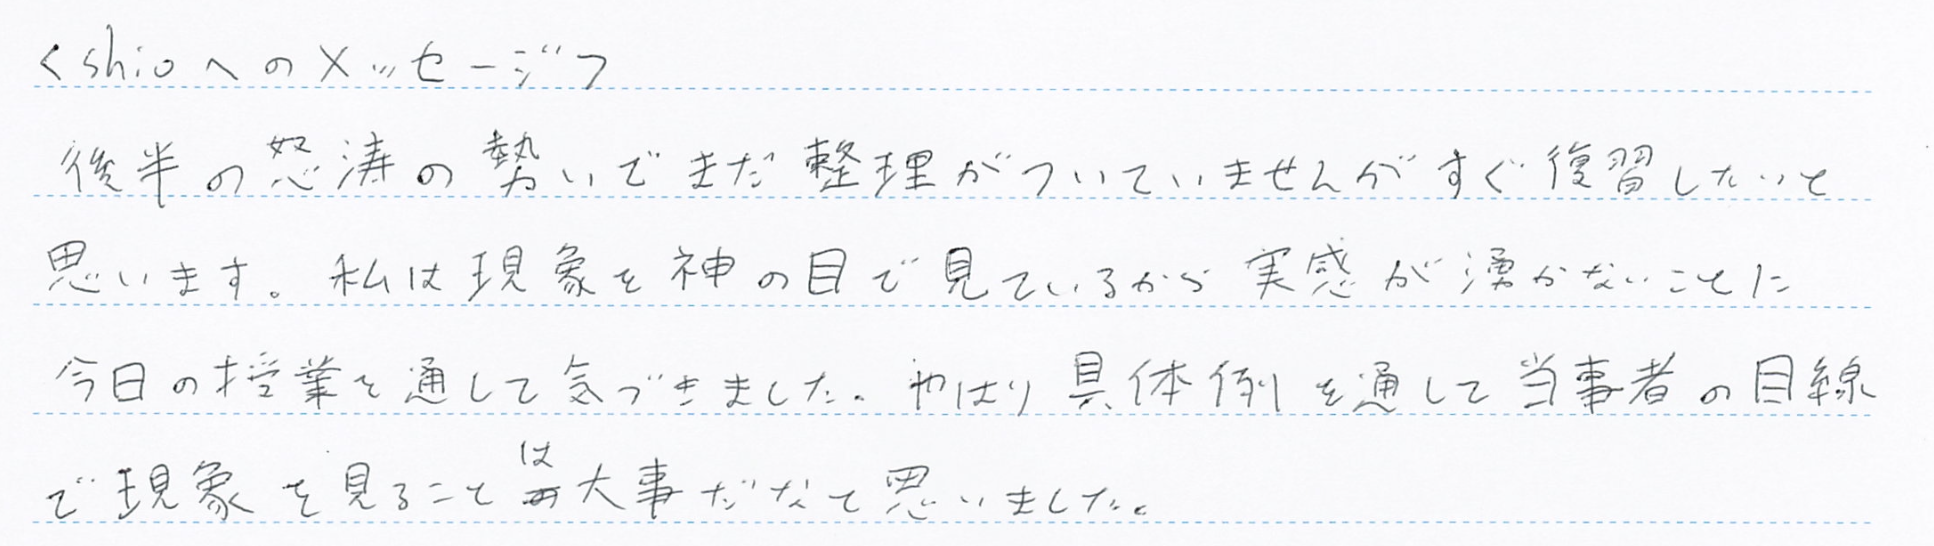 <shioへのメッセージ>
後半の怒涛の勢いでまだ整理がついていませんがすぐ復習したいと
思います。私は現象を神の目で見ているから実感が湧かないことに
今日の授業を通して気づきました。やはり具体例を通して当事者の目線
で現象を見ることは大事だなと思いました。